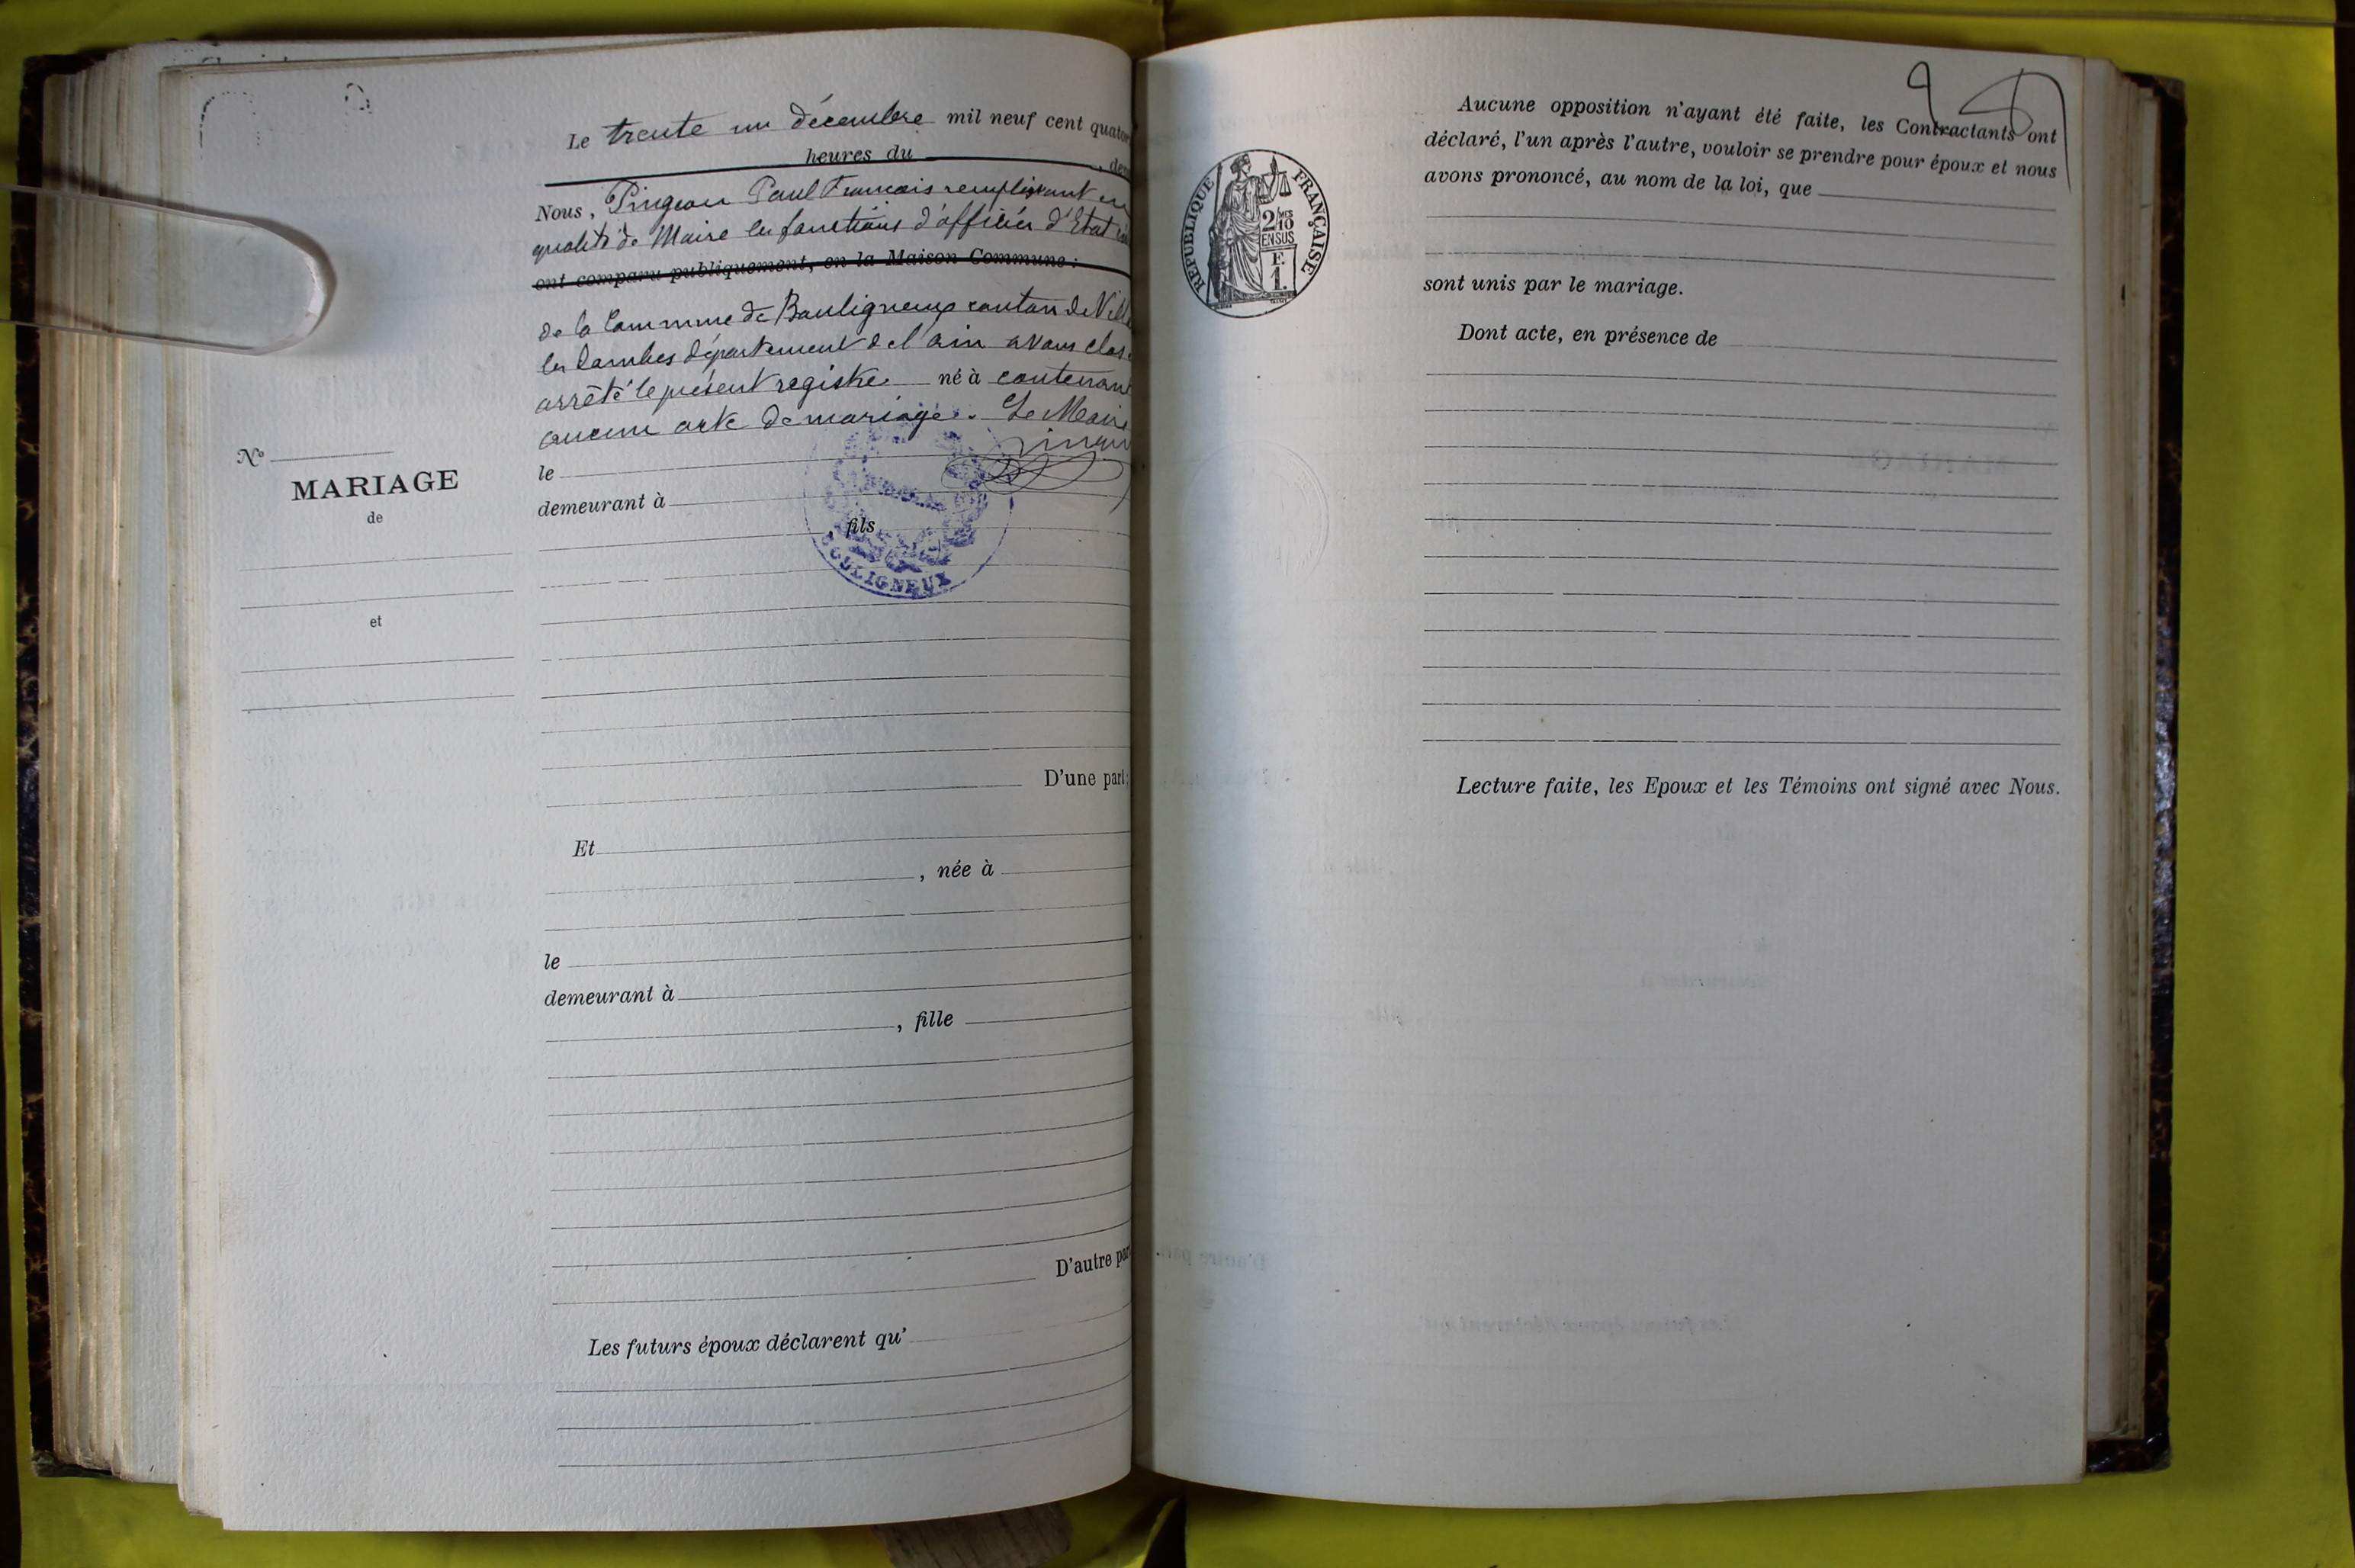 Le trente un décembre mil neuf cent quator
heures du , dev
Nous, Pingeon Paul François remplissant en
qualité de Maire les fonctions d'officier d'Etat civ
ont comparu publiquement, en la Maison Commune :
de la Commune de Bouligneux canton de Vill
les Dombes département de l'Ain avons clos
arrêté le présent registre né à contenant
aucun acte de mariage. Le Maire
le
demeurant à
fils
BOULIGNEUX
N°
MARIAGE
de
et
D'une part;
Et
, née à
le
demeurant à
, fille
D'autre par
Les futurs époux déclarent qu'
Aucune opposition n'ayant été faite, les Contractants ont
déclaré, l'un après l'autre, vouloir se prendre pour époux et nous
avons prononcé, au nom de la loi, que
RÉPUBLIQUE FRANÇAISE
2/10 MES
EN SUS
F.
1.
sont unis par le mariage.
Dont acte, en présence de
Lecture faite, les Epoux et les Témoins ont signé avec Nous.